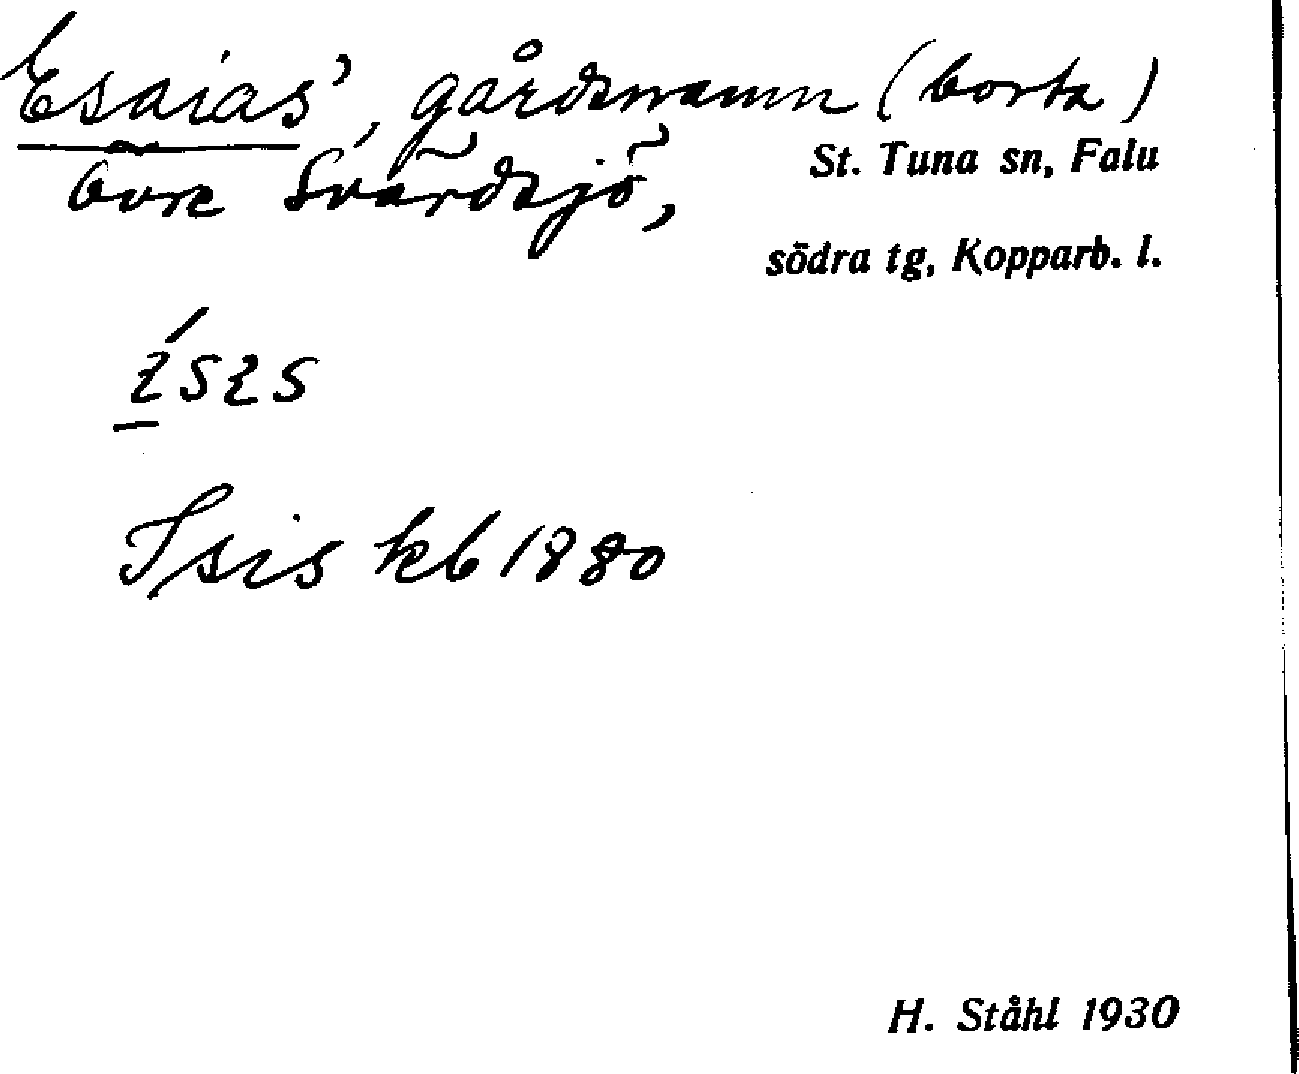 Esaias', gårdsnamn (borta)
övre Svärdsjö, St. Tuna sn, Falu
södra tg, Kopparb. l.
Isis kb 1880
H. Ståhl 1930